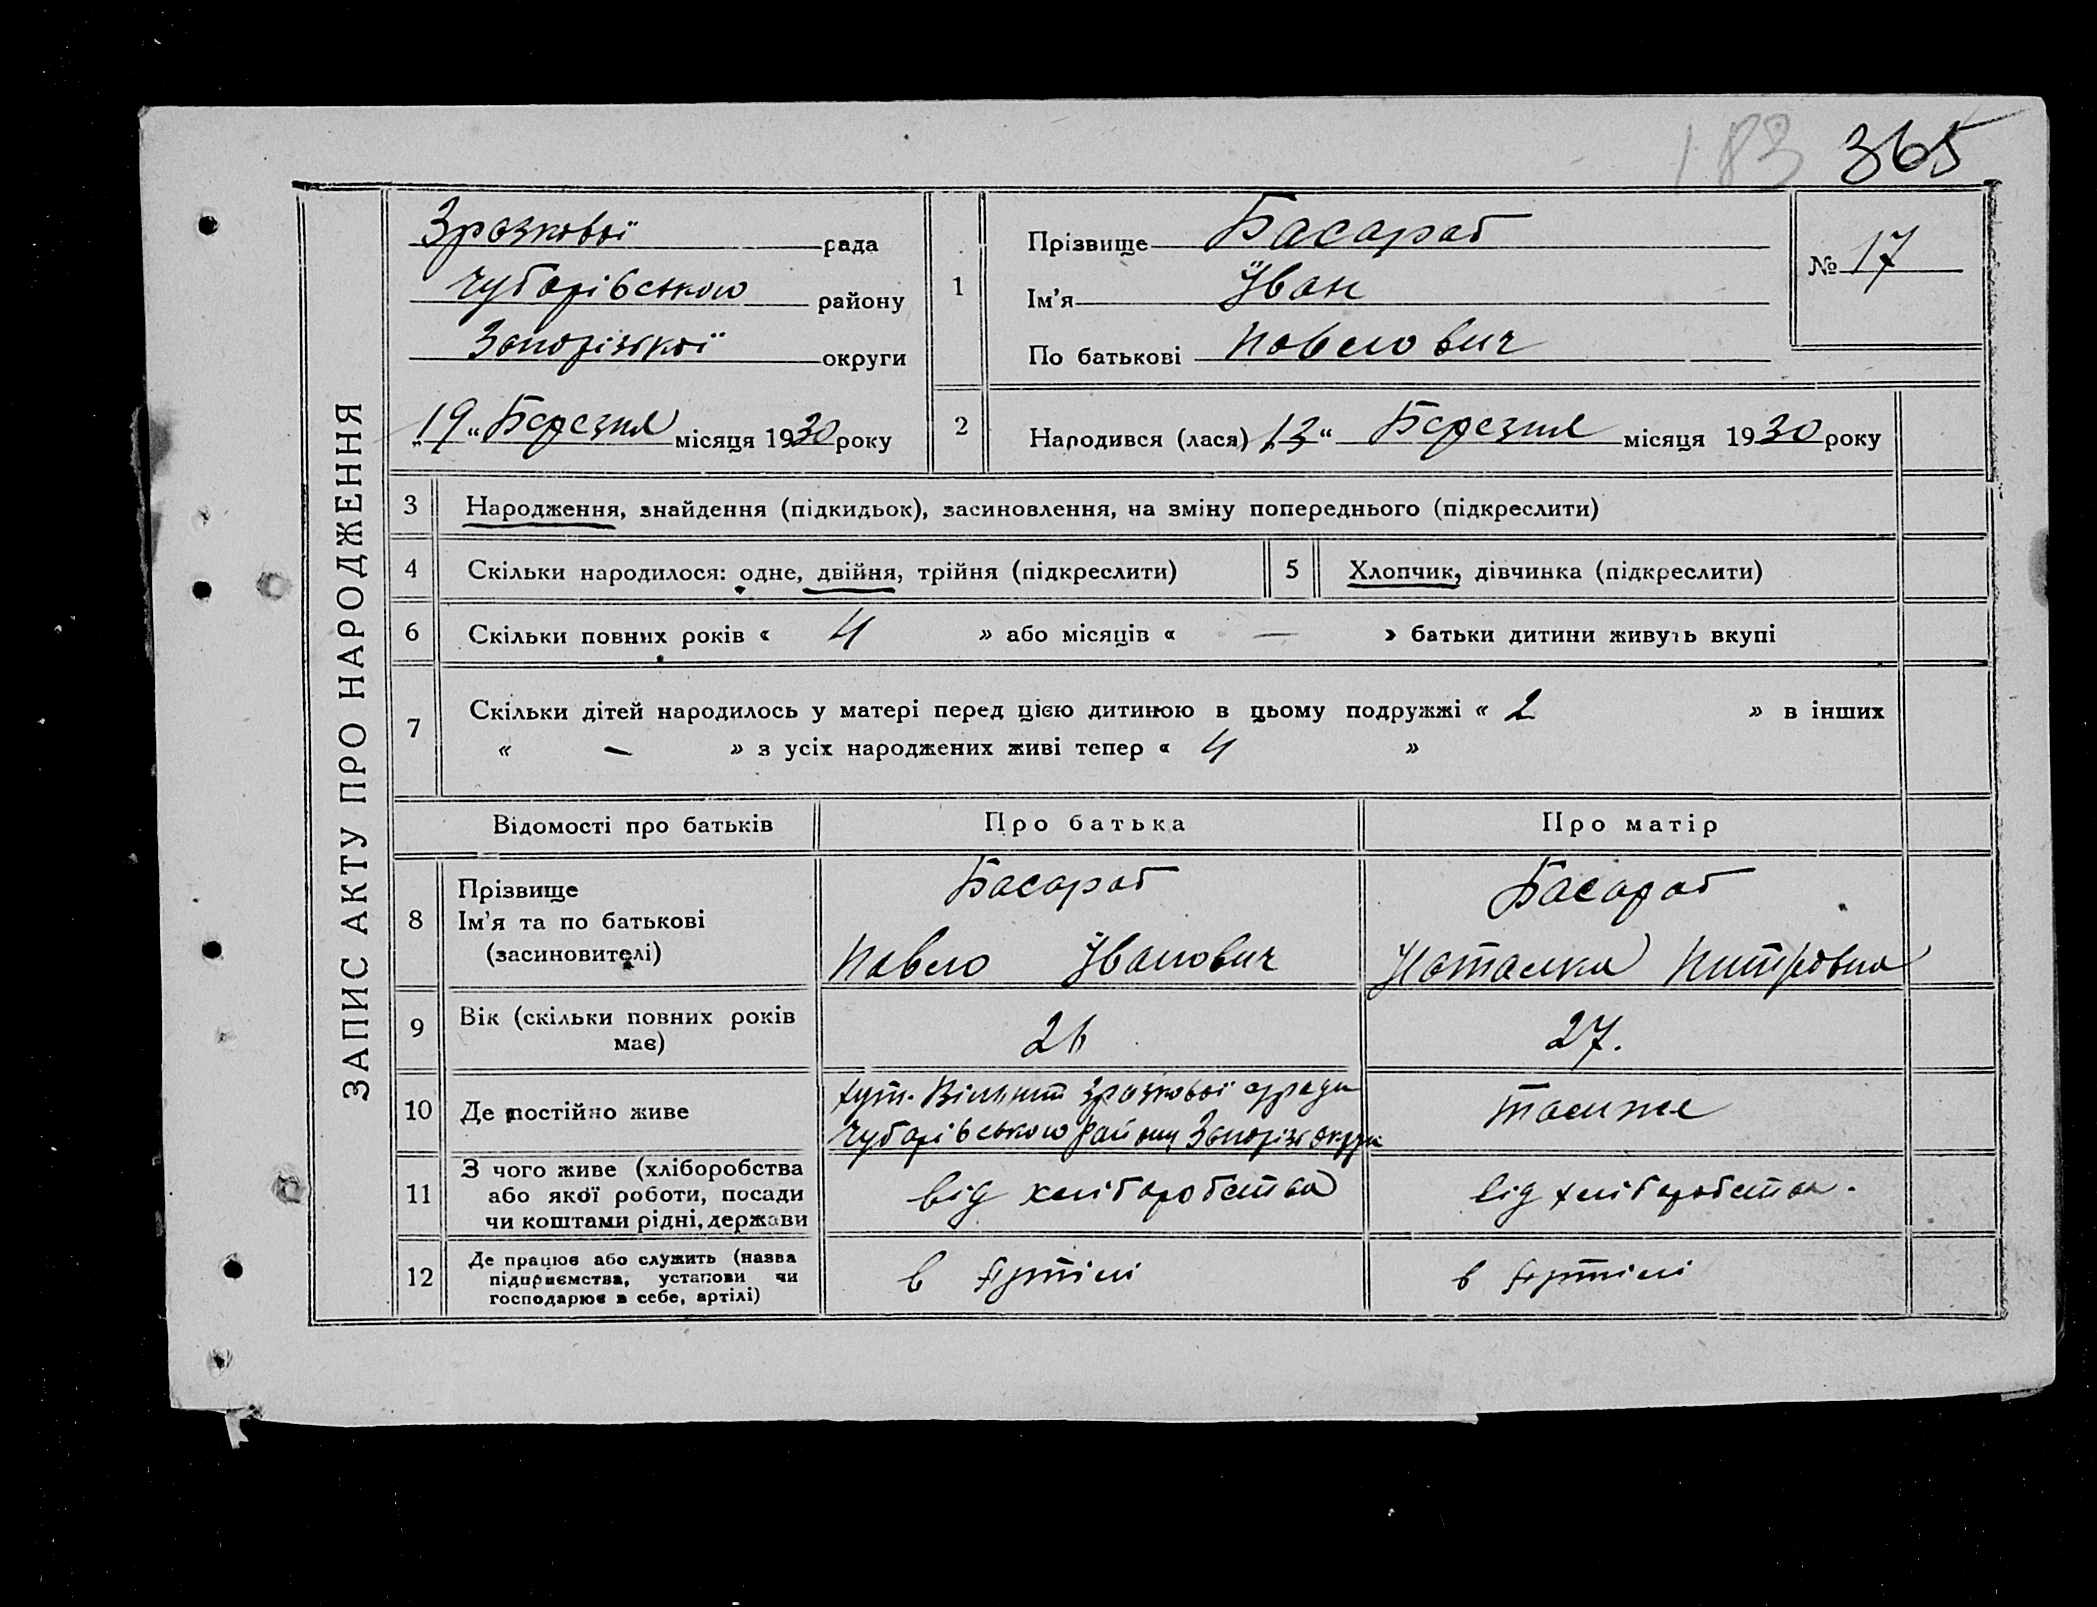 183 365
ЗАПИС АКТУ ПРО НАРОДЖЕННЯ
Зразкової рада
Чубарівського району
Запорізької округи
„19“ Березня місяця 1930 року
1
Прізвище Басараб
Ім'я Іван
По батькові Павлович
№ 17
2 Народився (лася) „13“ Березня місяця 1930 року
3 Народження, знайдення (підкидьок), засиновлення, на зміну попереднього (підкреслити)
4 Скільки народилося: одне, двійня, трійня (підкреслити) 5 Хлопчик, дівчинка (підкреслити)
6 Скільки повних років « 4 » або місяців « — » батьки дитини живуть вкупі
7 Скільки дітей народилось у матері перед цією дитиною в цьому подружжі « 2 » в інших
« — » з усіх народжених живі тепер « 4 »
Відомості про батьків Про батька Про матір
8 Прізвище
Ім'я та по батькові
(засиновителі)
Басараб
Павло Іванович
Басараб
Наталка Питровна
9 Вік (скільки повних років
має)
26
27.
10 Де постійно живе
хут. Вільний Зразкової с/ради
Чубарівського району Запорізь округи
також
11 З чого живе (хліборобства
або якої роботи, посади
чи коштами рідні, держави
від хліборобства
від хліборобства.
12 Де працює або служить (назва
підприємства, установи чи
господарює в себе, артілі)
в Артілі
в Артілі